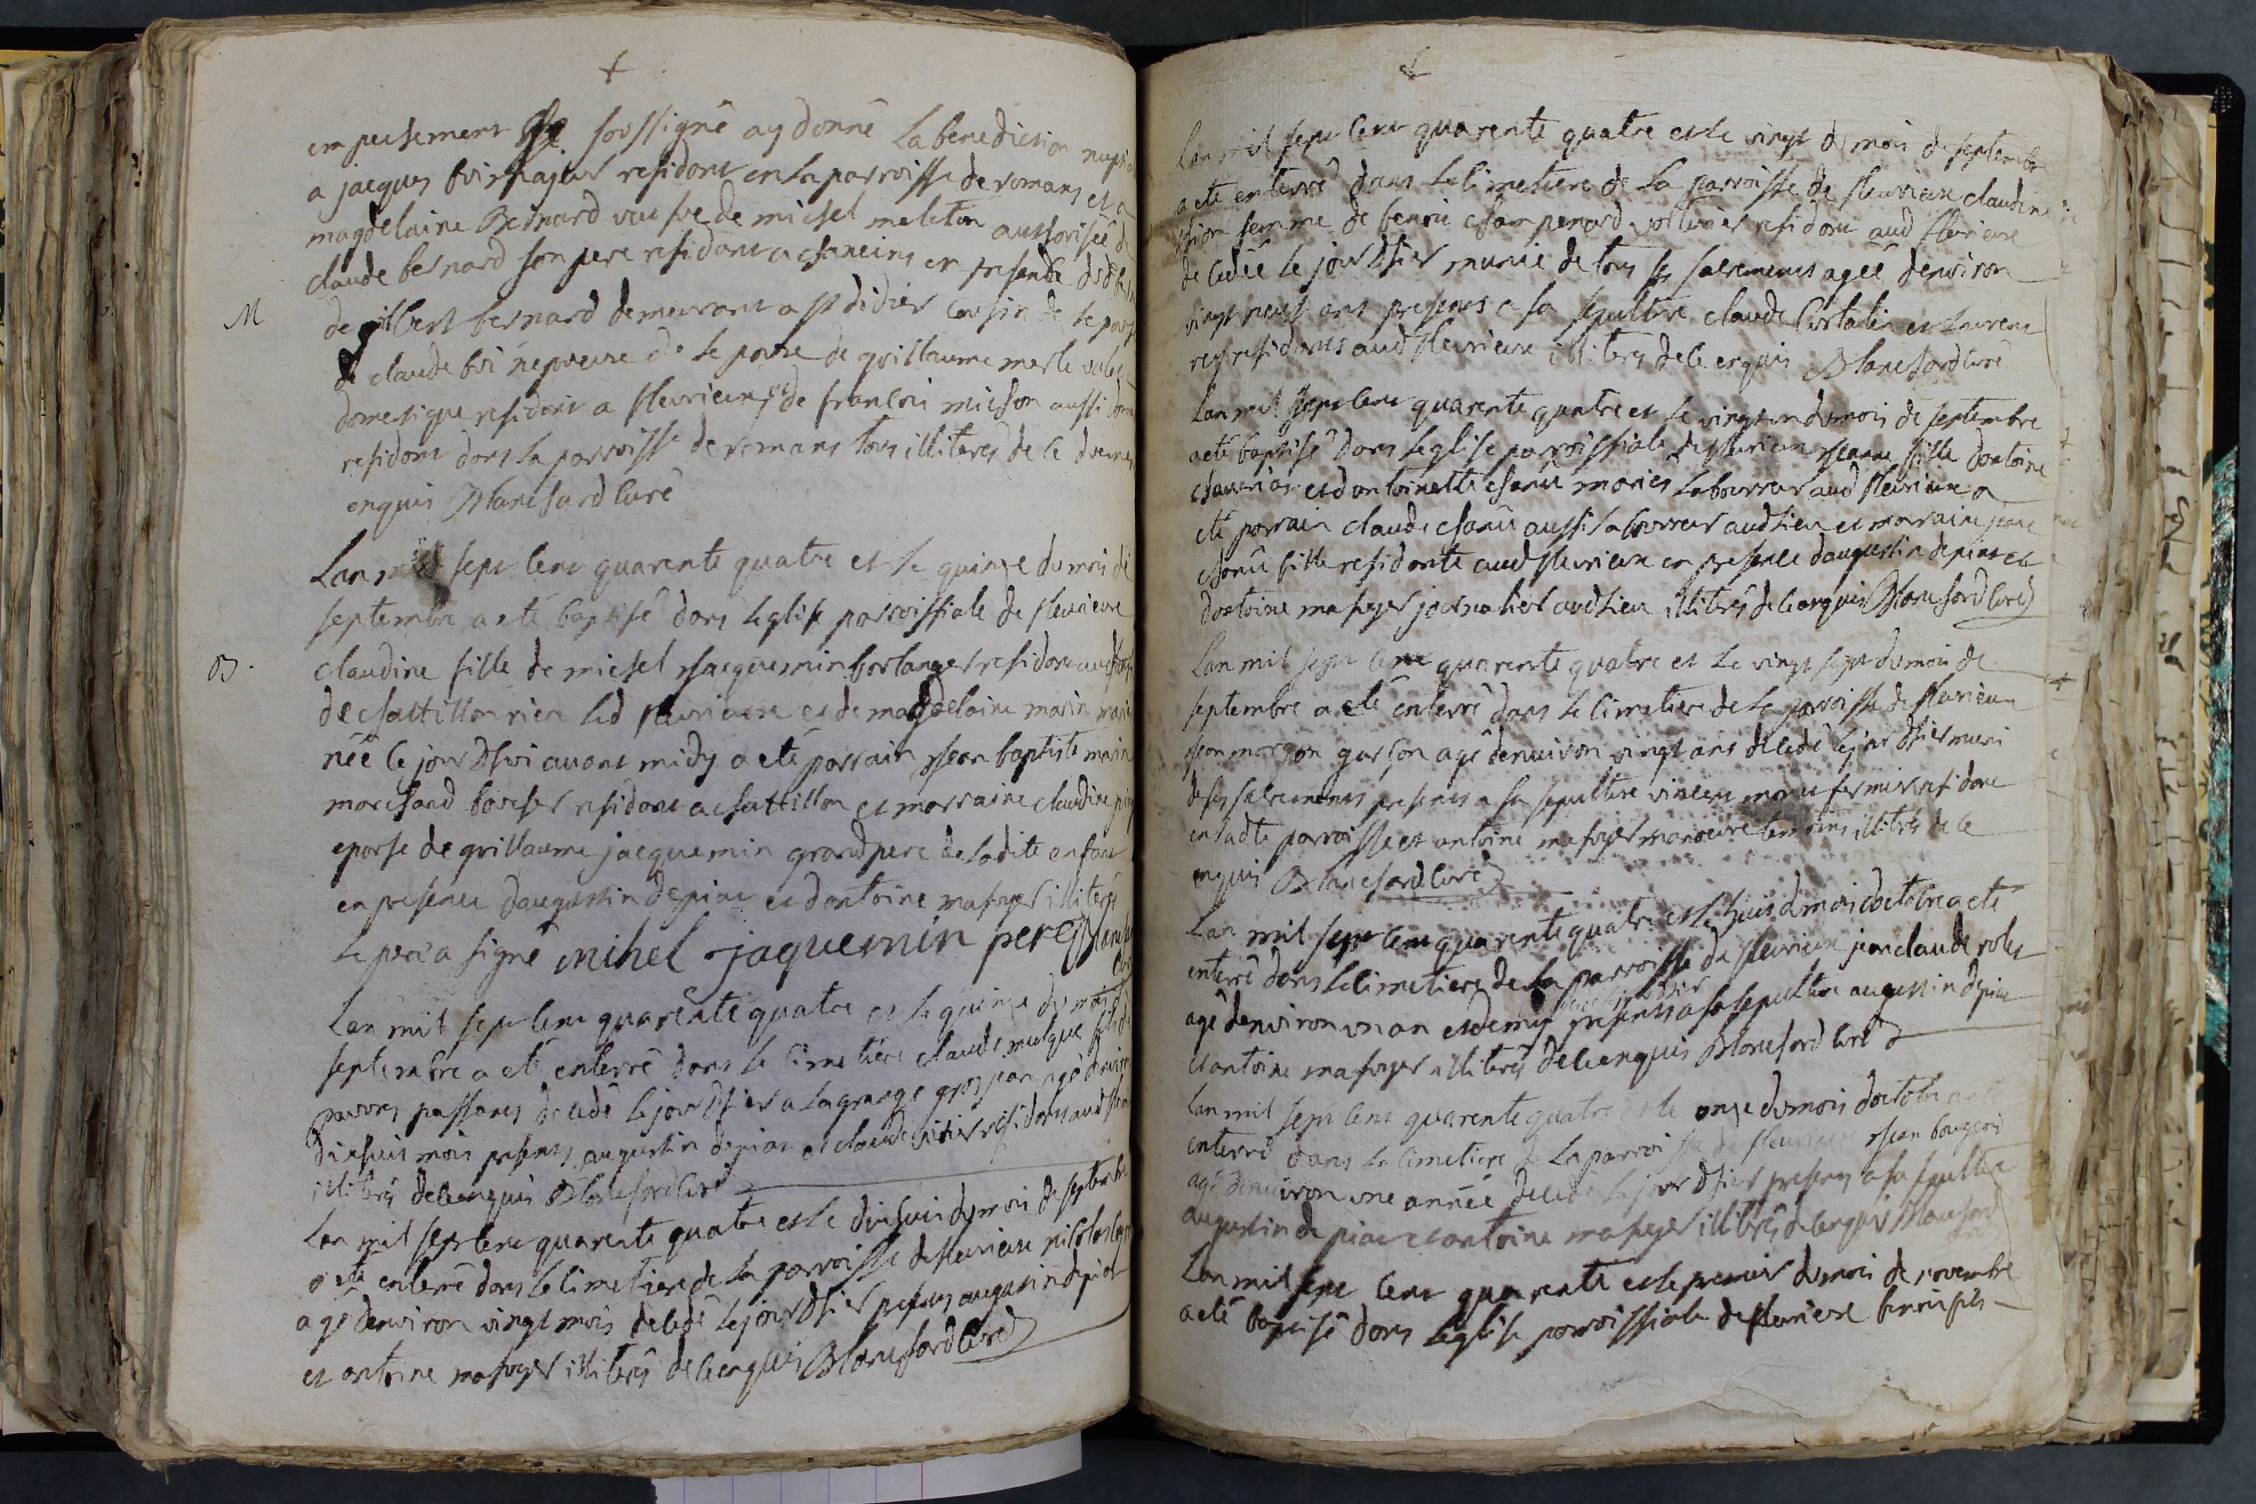 empechement soussigné ay donné la benediction nuptia
a jacques resident en la parroisse de romans et a
magdelaine Bernard veufve de michel meleton authorisée de
claude bernard son pere resident a chaneins en presence dud
M
de gilbert bernard demeurant a st didier cousin de
de claude de guillaume merle valet
domestique resident a fleurieux et de francois michon aussi
resident dans la parroisse de romans tous illiterés de ce duement
enquis Blanchard curé
Lan mil sept cent quarente quatre et le quinze du mois de
septembre a eté baptisé dans leglise parroissiale de fleurieux
B.
claudine fille de michel jacquemin borlanger resident
de chattillon riere led fleurieux et de magdelaine marin
née ce jour dhui avant midy a eté parrain jean baptiste marin
marchand boucher resident a chattillon et marraine claudine
epouse de guillaume jacquemin grand pere de ladite enfant
en presence daugustin depiat et dantoine masoyer illiterés
le pere a signé mihel jaquemin pere Blanchard
curé
Lan mil sept cent quarente quatre et le quinze du mois de
septembre a eté enterré dans le cimetiere claude fils de
pauvres passants decedé le jour dhier a la grange gros jean agé denviron
dix huit mois presents augustin depiat et claude residents aud
illiterés de ce enquis Blanchard curé
Lan mil sept cent quarente quatre et le dix huit du mois de septembre
a eté enterré dans le cimetiere de la parroisse de fleurieux nicolas
agé denviron vingt mois decedé le jour dhier presents augustin depiat
et antoine masoyer illiterés de ce enquis Blanchard curé
Lan mil sept cent quarente quatre et le vingt du mois de septembre
a eté enterré dans le cimetiere de la parroisse de fleurieux claudine
femme de benoit champenard resident aud fleurieux
decedée le jour dhier munie de tous ses sacrements agée denviron
vingt neuf ans presents a sa sepulture claude Curtalin et laurent
rey residents aud fleurieux illiterés de ce enquis Blanchard curé
Lan mil sept cent quarente quatre et le vingt un du mois de septembre
a eté baptisé dans leglise parroissiale de fleurieux jeanne fille dantoine
et dantoinette mariés laboureur aud fleurieux a
eté parrain claude aussi laboureur aud lieu et marraine jeanne
fille residente aud fleurieux en presence daugustin depiat et
dantoine masoyer journalier aud lieu illiterés de ce enquis Blanchard curé
Lan mil sept cent quarente quatre et le vingt sept du mois de
septembre a eté enterré dans le cimetiere de la parroisse de fleurieux
jean morgon garson agé denviron vingt ans decedé le jour dhier muni
de ses sacrements presents a sa sepulture vincent fermier resident
en ladte parroisse et antoine masoyer manoeuvre temoins illiterés de ce
enquis Blanchard curé
Lan mil sept cent quarente quatre et le huit du mois doctobre a eté
enterré dans le cimetiere de la parroisse de fleurieux jean claude
agé denviron un an et demi decedé hier presents a sa sepulture augustin depiat
et antoine masoyer illiterés de ce enquis Blanchard curé
Lan mil sept cent quarente quatre et le onze du mois doctobre a eté
enterré dans le cimetiere de la parroisse de fleurieux jean
agé denviron une année decedé le jour dhier presents a sa sepulture
augustin de piat et antoine masoyer illiterés de ce enquis Blanchard
Lan mil sept cent quarente et le premier du mois de novembre
a eté baptisé dans leglise parroissiale de fleurieux benoit fils